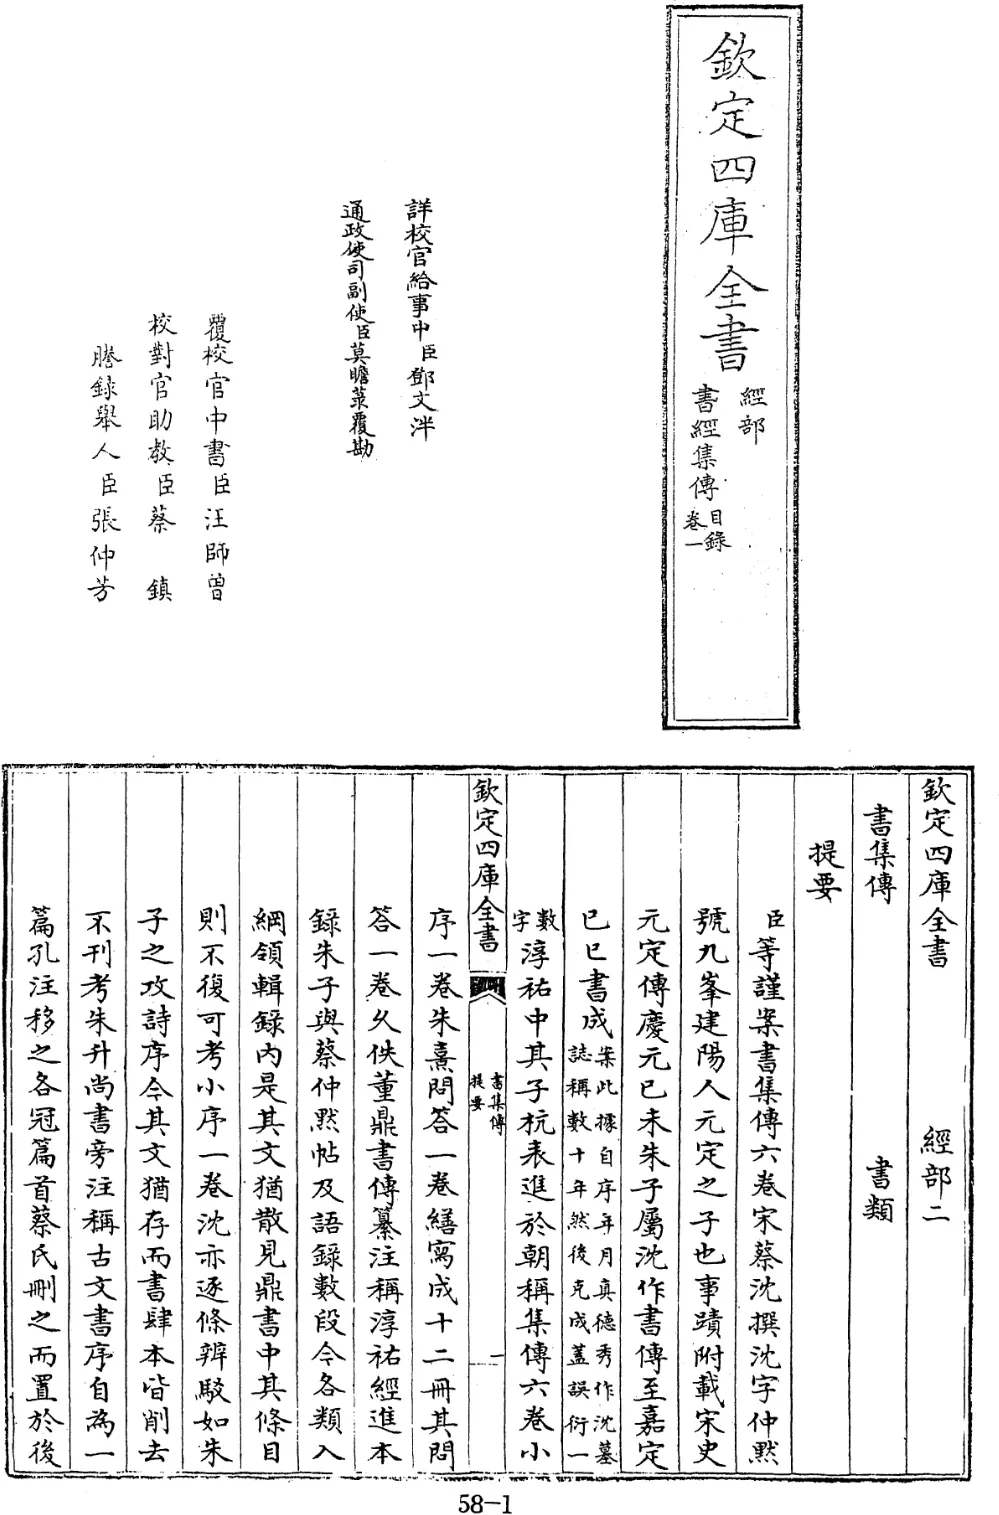 欽定四庫全書
經部
書經集傳
目錄
卷一
詳校官給事中臣鄧文泮
通政使司副使臣莫瞻菉覆勘
覆校官中書臣汪師曾
校對官助教臣蔡鎮
謄錄舉人臣張仲芳
欽定四庫全書 經部二
書集傳 書類
提要
臣等謹案書集傳六卷宋蔡沈撰沈字仲黙
號九峯建陽人元定之子也事蹟附載宋史
元定傳慶元已未朱子屬沈作書傳至嘉定
已巳書成案此據自序年月真德秀作沈墓
誌稱數十年然後克成蓋誤衍一
數
字淳祐中其子杭表進於朝稱集傳六卷小
欽定四庫全書
書集傳
提要
一
序一卷朱熹問答一卷繕寫成十二冊其問
答一卷久佚董鼎書傳纂注稱淳祐經進本
録朱子與蔡仲黙帖及語録數段今各類入
綱領輯録内是其文猶散見鼎書中其條目
則不復可考小序一卷沈亦逐條辨駁如朱
子之攻詩序今其文猶存而書肆本皆削去
不刊考朱升尚書旁注稱古文書序自為一
篇孔注移之各冠篇首蔡氏刪之而置於後
58-1